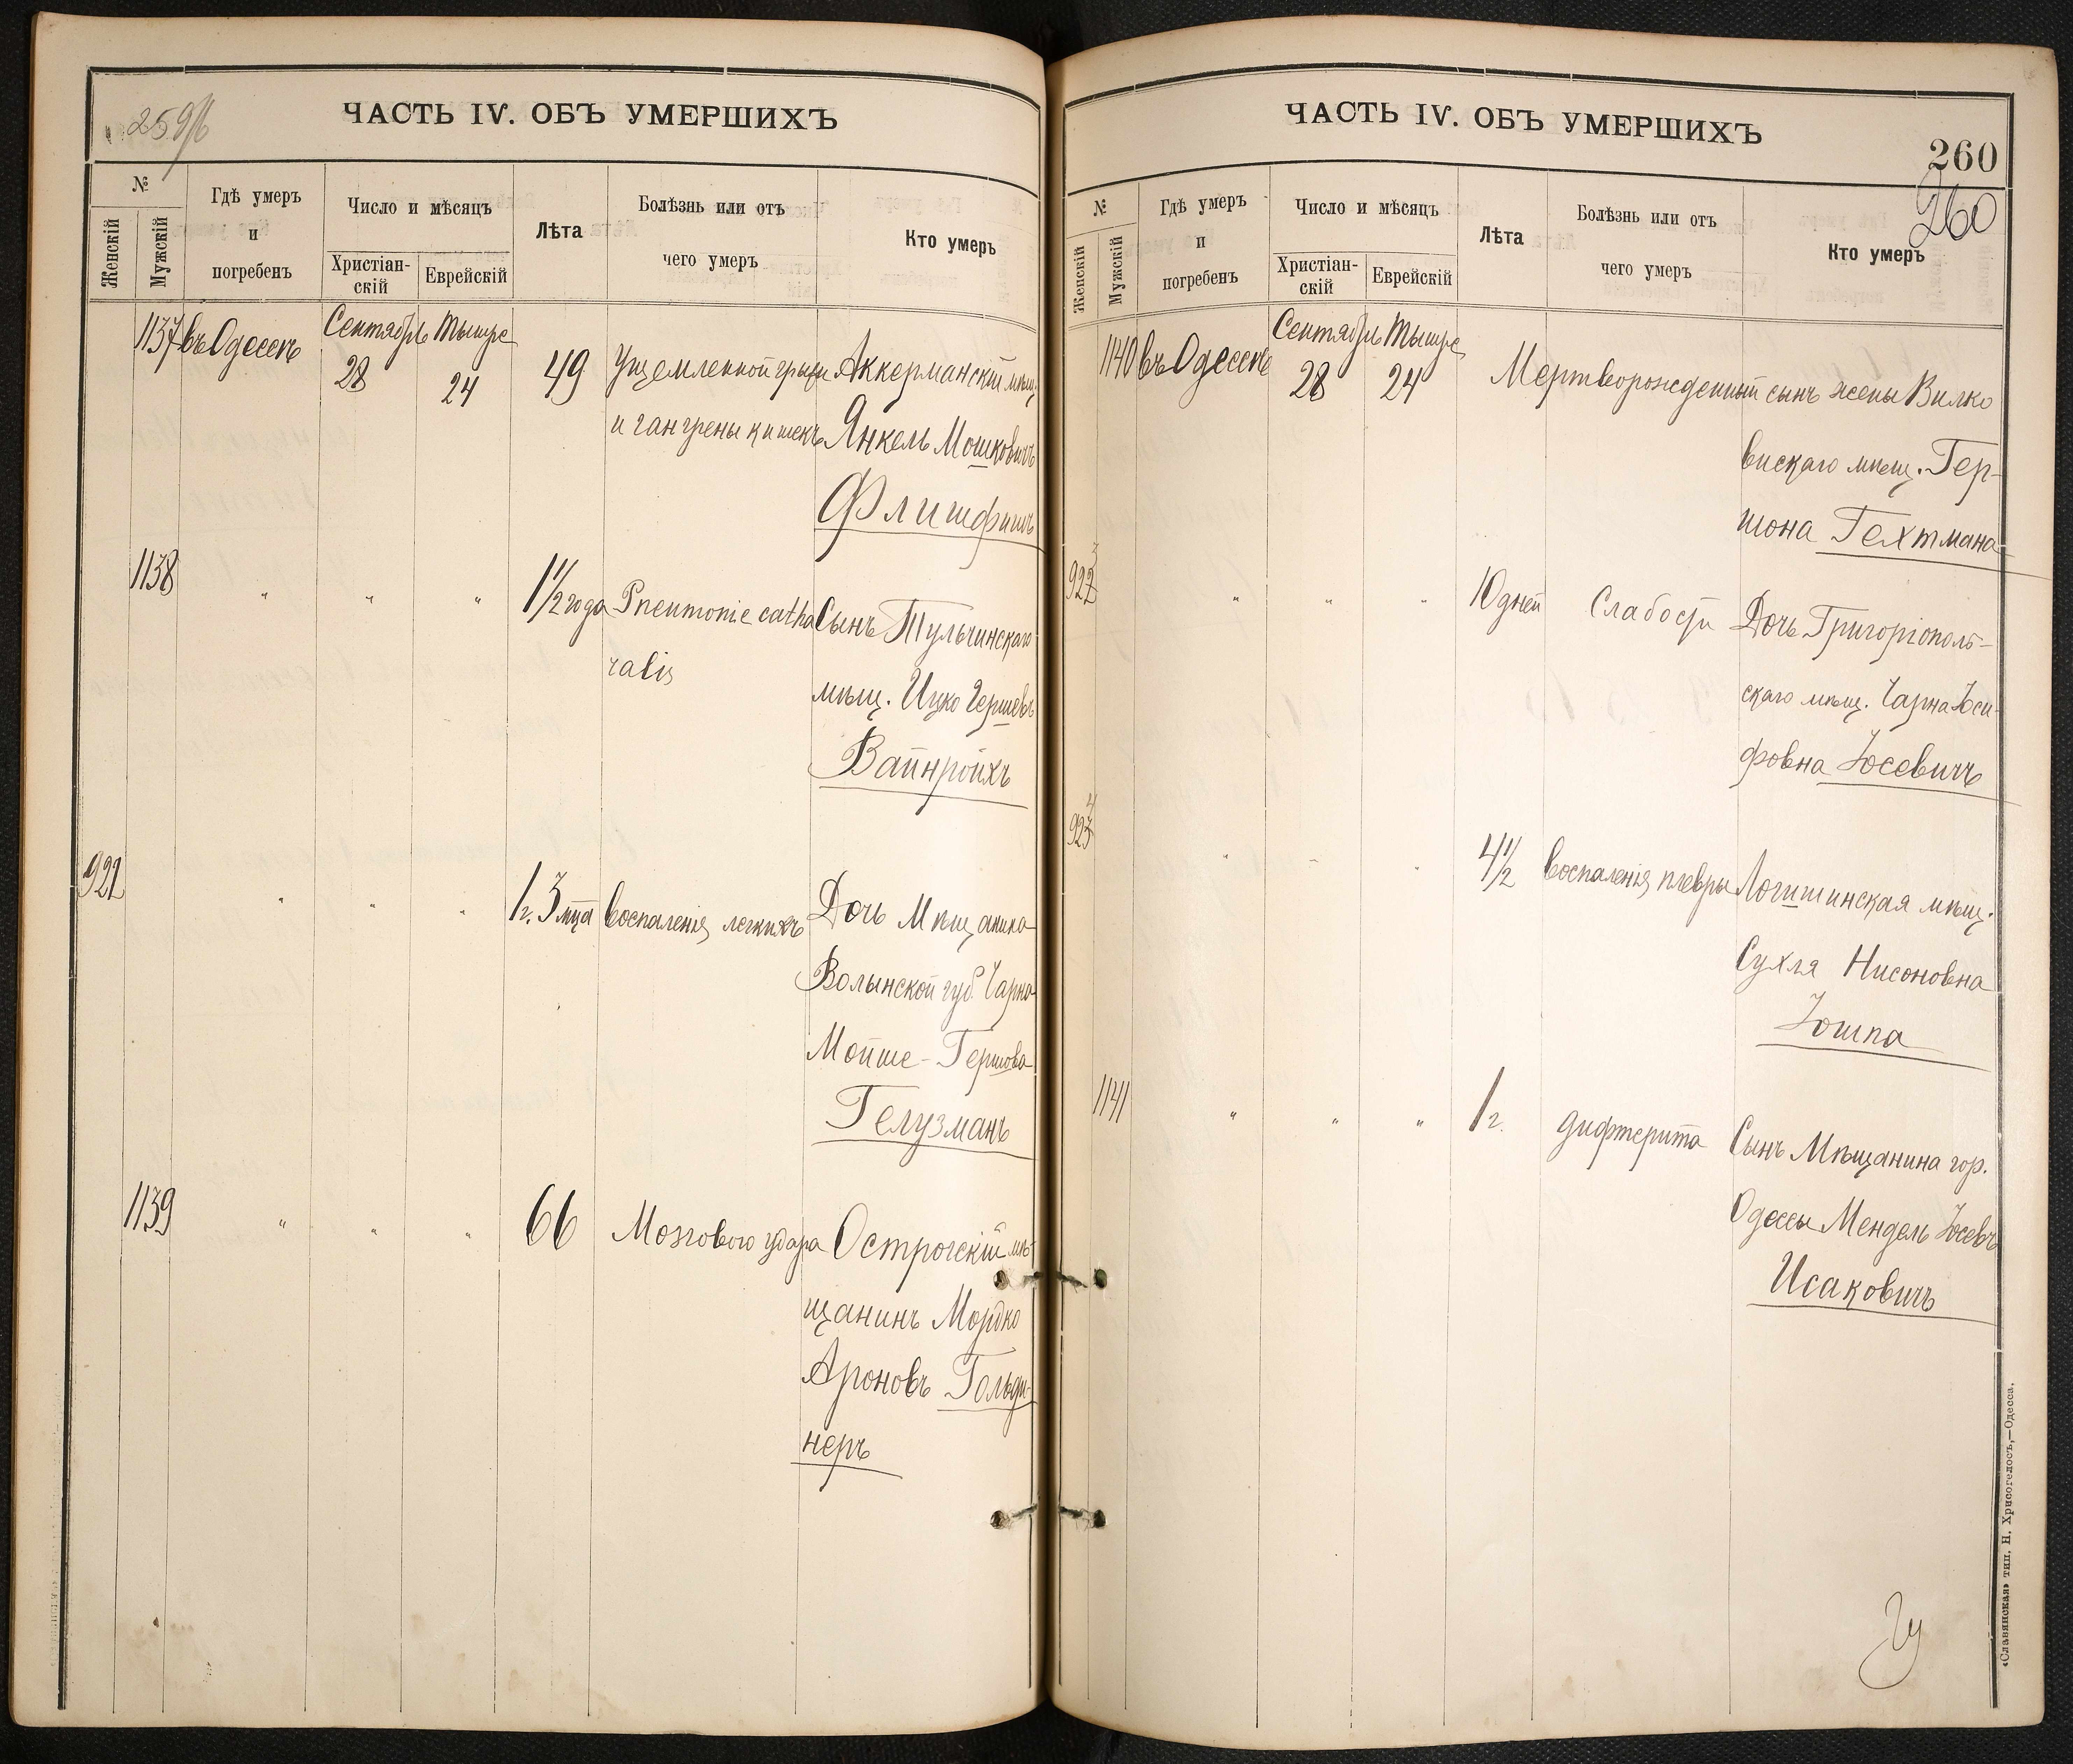 259/б
ЧАСТЬ IV. ОБЪ УМЕРШИХЪ
№
Женскій
Мужскій
Гдѣ умеръ
и
погребенъ
Число и мѣсяцъ
Христіан-
скій
Еврейскій
Лѣта
Болѣзнь или отъ
чего умеръ
Кто умеръ
1137 въ Одессѣ Сентябрь 28 Тышре 24 49 Ущемленной грыжи Аккерманскій мѣщ.
и гангрены кишекъ Янкель Мошковичъ
Флишфишъ
1138 " " " 1 1/2 года Pneumonie catha Сынъ Тульчинскаго
ralis мѣщ. Ицко Гершевъ
Вайнройхъ
921 " " " 1 г. 3 мца Воспаленія легкихъ Дочь Мѣщанина
Волынской губ. Чарна
Мойше-Гершова
Гелузманъ
1139 " " " 66 Мозгового удара Острогскій мѣ-
щанинъ Мордко
Ароновъ Гольди-
неръ
ЧАСТЬ IV. ОБЪ УМЕРШИХЪ
260
260
№
Женскій
Мужскій
Гдѣ умеръ
и
погребенъ
Число и мѣсяцъ
Христіан-
скій
Еврейскій
Лѣта
Болѣзнь или отъ
чего умеръ
Кто умеръ
1140 въ Одессѣ Сентябрь 28 Тышре 24 Мертворожденный сынъ жены Вилко
вискаго мѣщ. Гер-
шона Гехтмана
922 " " " 10 дней Слабости Дочь Григоріополь-
скаго мѣщ. Чарна Іоси-
фовна Іосевичъ
923 " " " 4 1/2 Воспаленія плевры Логишинская мѣщ.
Сухля Нисоновна
Іошпа
1141 " " " 1 г. Дифтерита Сынъ Мѣщанина гор.
Одессы Мендель Іосевъ
Исаковичъ
«Славянская» тип. Н. Хрисогелосъ,—Одесса.